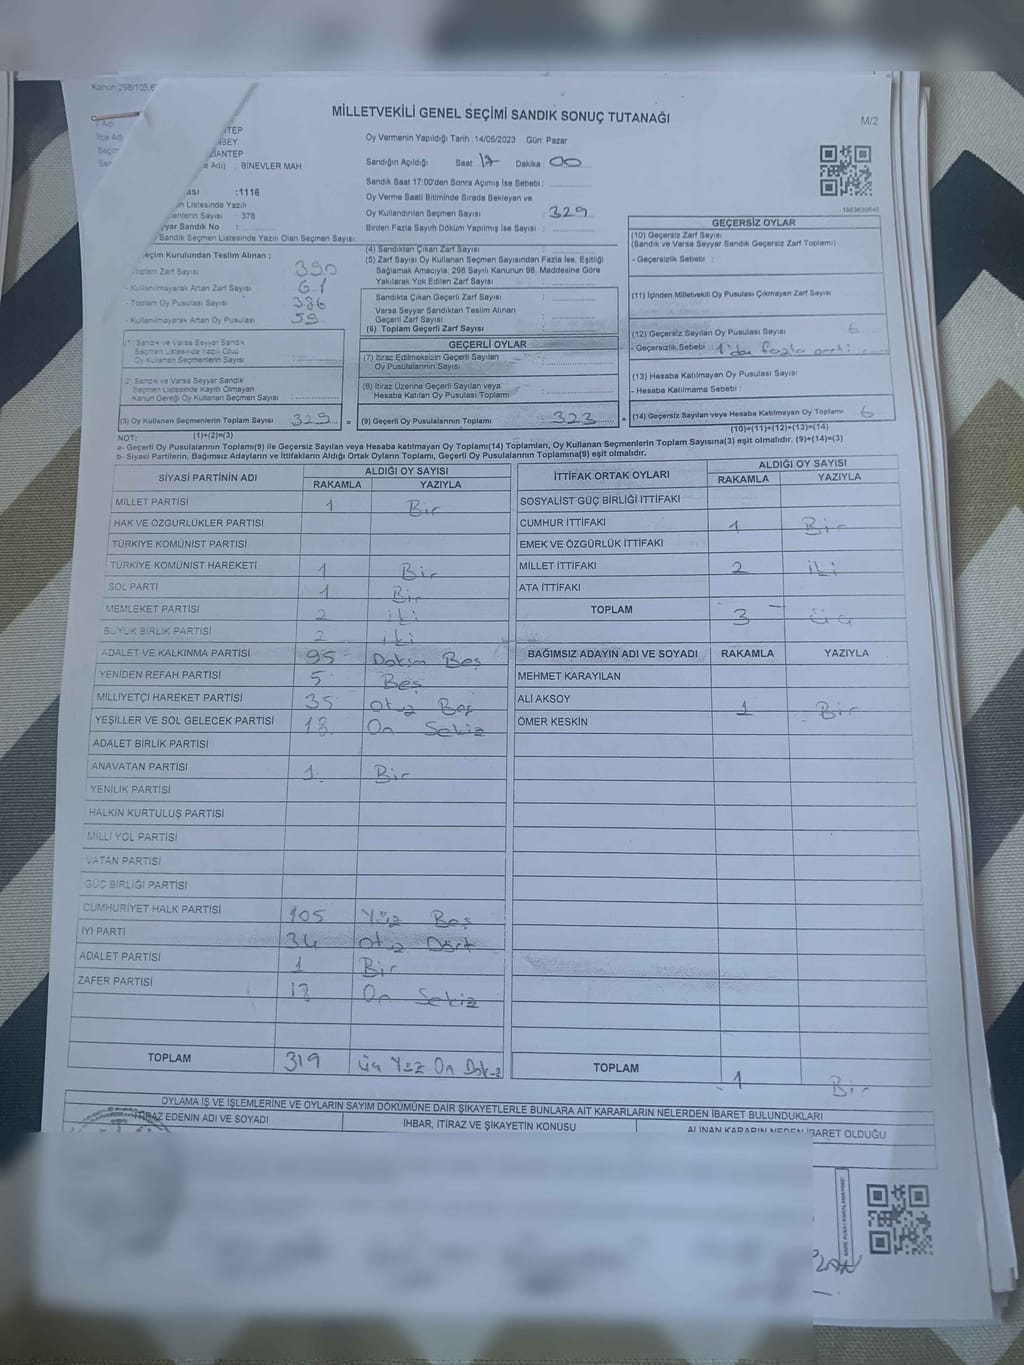 Kanun 298/105,6
MİLLETVEKİLİ GENEL SEÇİMİ SANDIK SONUÇ TUTANAĞI
M/2
İlçe Adı
BEY
ANTEP
e Adı) . BİNEVLER MAH.
ası :1116
n Listesinde Yazılı
enlerin Sayısı : 378
yyar Sandık No :
Sandık Seçmen Listesinde Yazılı Olan Seçmen Sayısı:
eçim Kurulundan Teslim Alınan ;
oplam Zarf Sayısı 390
- Kullanılmayarak Artan Zarf Sayısı 61
- Toplam Oy Pusulası Sayısı 386
- Kullanılmayarak Artan Oy Pusulası 59
(1) Sandık ve Varsa Seyyar Sandık
Seçmen Listesinde Yazılı Olup
Oy Kullanan Seçmenlerin Sayısı
(2) Sandık ve Varsa Seyyar Sandık
Seçmen Listesinde Kayıtlı Olmayan
Kanun Gereği Oy Kullanan Seçmen Sayısı :
(3) Oy Kullanan Seçmenlerin Toplam Sayısı 329 =
Oy Vermenin Yapıldığı Tarih :14/05/2023 Gün: Pazar
Sandığın Açıldığı Saat: 17 Dakika : 00
Sandık Saat 17:00'den Sonra Açımış İse Sebebi :
Oy Verme Saati Bitiminde Sırada Bekleyen ve
Oy Kullandırılan Seçmen Sayısı : 329
Birden Fazla Sayım Döküm Yapılmış İse Sayısı :
(4) Sandıktan Çıkan Zarf Sayısı :
(5) Zarf Sayısı Oy Kullanan Seçmen Sayısından Fazla İse, Eşitliği
Sağlamak Amacıyla; 298 Sayılı Kanunun 98. Maddesine Göre
Yakılarak Yok Edilen Zarf Sayısı :
Sandıkta Çıkan Geçerli Zarf Sayısı :
Varsa Seyyar Sandıktan Teslim Alınan
Geçerli Zarf Sayısı :
(6) Toplam Geçerli Zarf Sayısı :
GEÇERLİ OYLAR
(7) İtiraz Edilmeksizin Geçerli Sayılan
Oy Pusulalarının Sayısı :
(8) İtiraz Üzerine Geçerli Sayılan veya
Hesaba Katılan Oy Pusulası Toplamı :
(9) Geçerli Oy Pusulalarının Toplamı : 323 +
GEÇERSİZ OYLAR
(10) Geçersiz Zarf Sayısı
(Sandık ve Varsa Seyyar Sandık Geçersiz Zarf Toplamı)
- Geçersizlik Sebebi :
(11) İçinden Milletvekili Oy Pusulası Çıkmayan Zarf Sayısı
(12) Geçersiz Sayılan Oy Pusulası Sayısı 6
- Geçersizlik Sebebi : 1'den fazla parti
(13) Hesaba Katılmayan Oy Pusulası Sayısı
- Hesaba Katılmama Sebebi :
(14) Geçersiz Sayılan veya Hesaba Katılmayan Oy Toplamı 6
(1)+(2)=(3)
(10)+(11)+(12)+(13)=(14)
NOT:
a- Geçerli Oy Pusulalarının Toplamı(9) ile Geçersiz Sayılan veya Hesaba katılmayan Oy Toplamı(14) Toplamları, Oy Kullanan Seçmenlerin Toplam Sayısına(3) eşit olmalıdır. (9)+(14)=(3)
b- Siyasi Partilerin, Bağımsız Adayların ve İttifakların Aldığı Ortak Oyların Toplamı, Geçerli Oy Pusulalarının Toplamına(9) eşit olmalıdır.
SİYASİ PARTİNİN ADI ALDIĞI OY SAYISI
RAKAMLA YAZIYLA
MİLLET PARTİSİ 1 Bir
HAK VE ÖZGÜRLÜKLER PARTİSİ
TÜRKİYE KOMÜNİST PARTİSİ
TÜRKİYE KOMÜNİST HAREKETİ 1 Bir
SOL PARTİ 1 Bir
MEMLEKET PARTİSİ 2 iki
BÜYÜK BİRLİK PARTİSİ 2 iki
ADALET VE KALKINMA PARTİSİ 95 Doksan Beş
YENİDEN REFAH PARTİSİ 5 Beş
MİLLİYETÇİ HAREKET PARTİSİ 35 Otuz Beş
YEŞİLLER VE SOL GELECEK PARTİSİ 18 On Sekiz
ADALET BİRLİK PARTİSİ
ANAVATAN PARTİSİ 1 Bir
YENİLİK PARTİSİ
HALKIN KURTULUŞ PARTİSİ
MİLLİ YOL PARTİSİ
VATAN PARTİSİ
GÜÇ BİRLİĞİ PARTİSİ
CUMHURİYET HALK PARTİSİ 105 Yüz Beş
İYİ PARTİ 34 Otuz Dört
ADALET PARTİSİ 1 Bir
ZAFER PARTİSİ 18 On Sekiz
TOPLAM 319 Üç Yüz On Dokuz
İTTİFAK ORTAK OYLARI ALDIĞI OY SAYISI
RAKAMLA YAZIYLA
SOSYALİST GÜÇ BİRLİĞİ İTTİFAKI
CUMHUR İTTİFAKI 1 Bir
EMEK VE ÖZGÜRLÜK İTTİFAKI
MİLLET İTTİFAKI 2 iki
ATA İTTİFAKI
TOPLAM 3 üç
BAĞIMSIZ ADAYIN ADI VE SOYADI RAKAMLA YAZIYLA
MEHMET KARAYILAN
ALİ AKSOY 1 Bir
ÖMER KESKİN
TOPLAM 1 Bir
OYLAMA İŞ VE İŞLEMLERİNE VE OYLARIN SAYIM DÖKÜMÜNE DAİR ŞİKAYETLERLE BUNLARA AİT KARARLARIN NELERDEN İBARET BULUNDUKLARI
İTİRAZ EDENİN ADI VE SOYADI İHBAR, İTİRAZ VE ŞİKAYETİN KONUSU ALINAN KARARIN NEDEN İBARET OLDUĞU